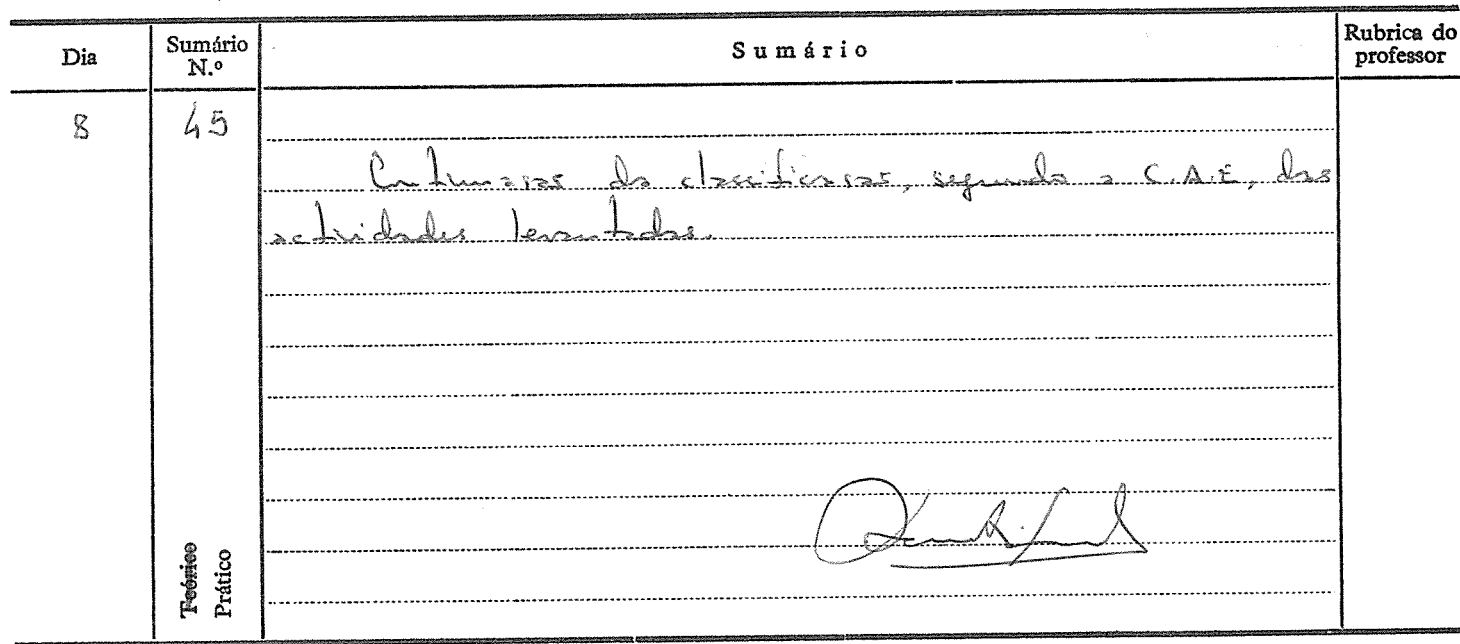 Dia Sumário N.º Sumário Rubrica do professor
8 45
Continuação da classificação, segundo a C.A.E, das
actividades levantadas.
Teórico
Prático